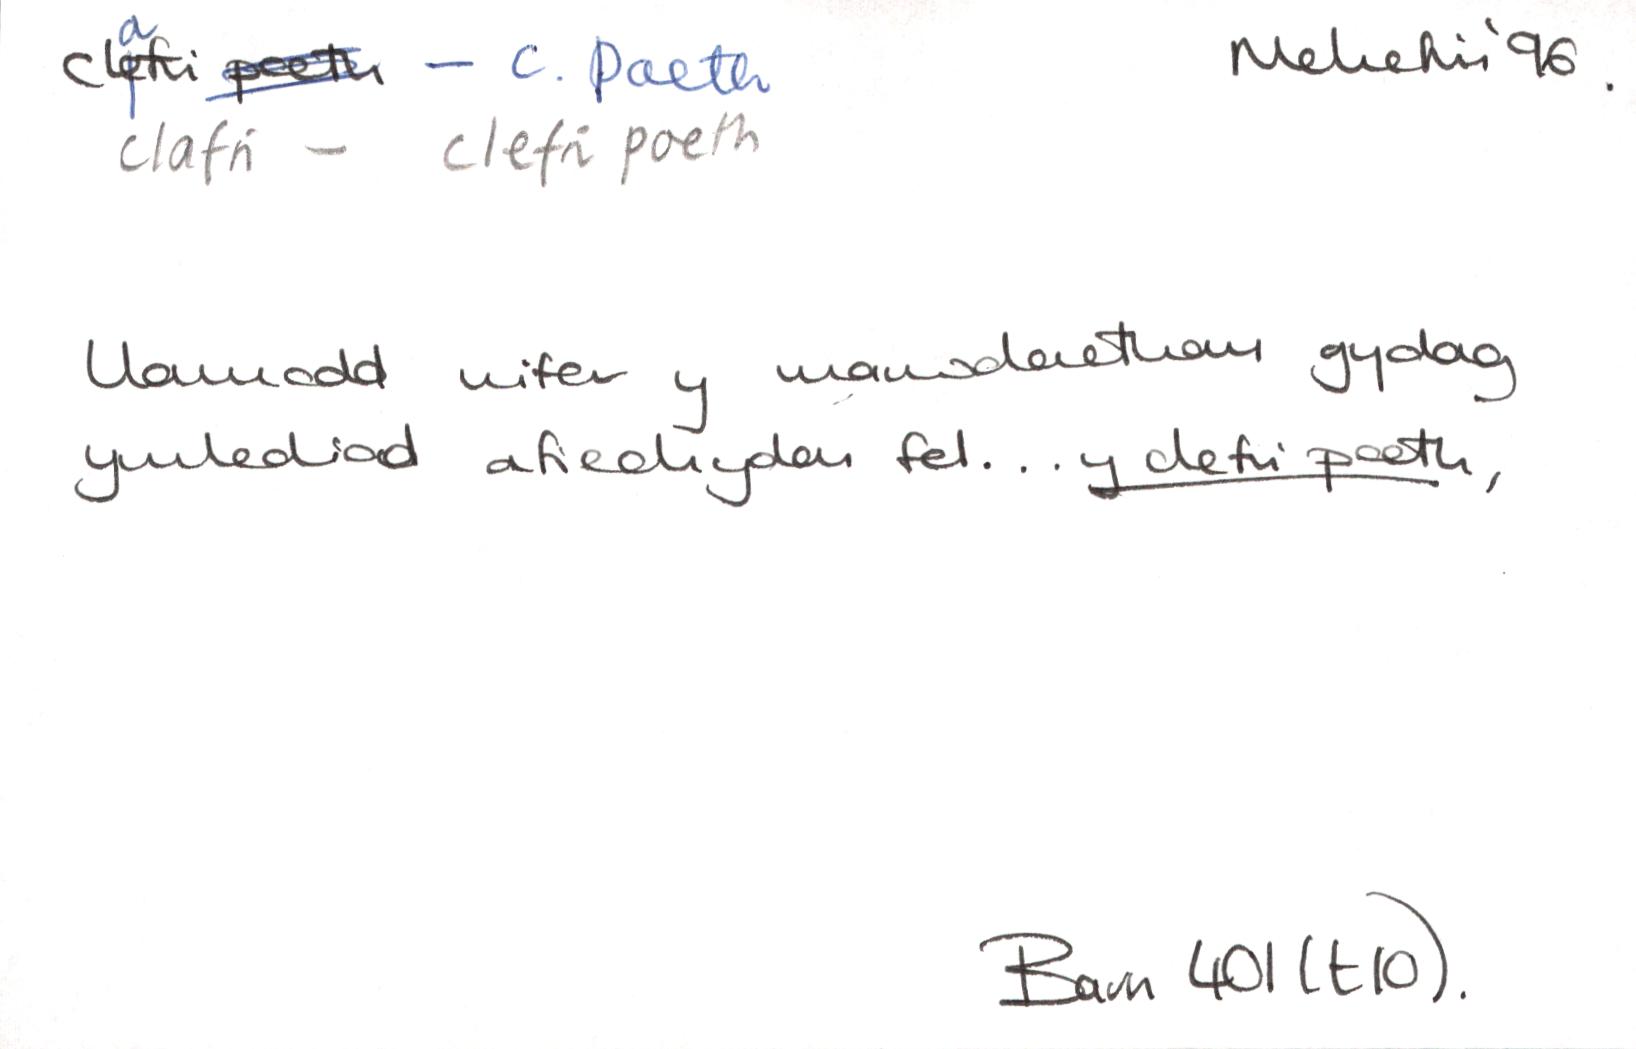 clafri poeth — c. Poeth Mehefin '96.
clafri — clefri poeth
Llamodd nifer y marwolaethau gydag
ymlediad afiechydon fel... y clefri poeth,
Barn 401 (t10).